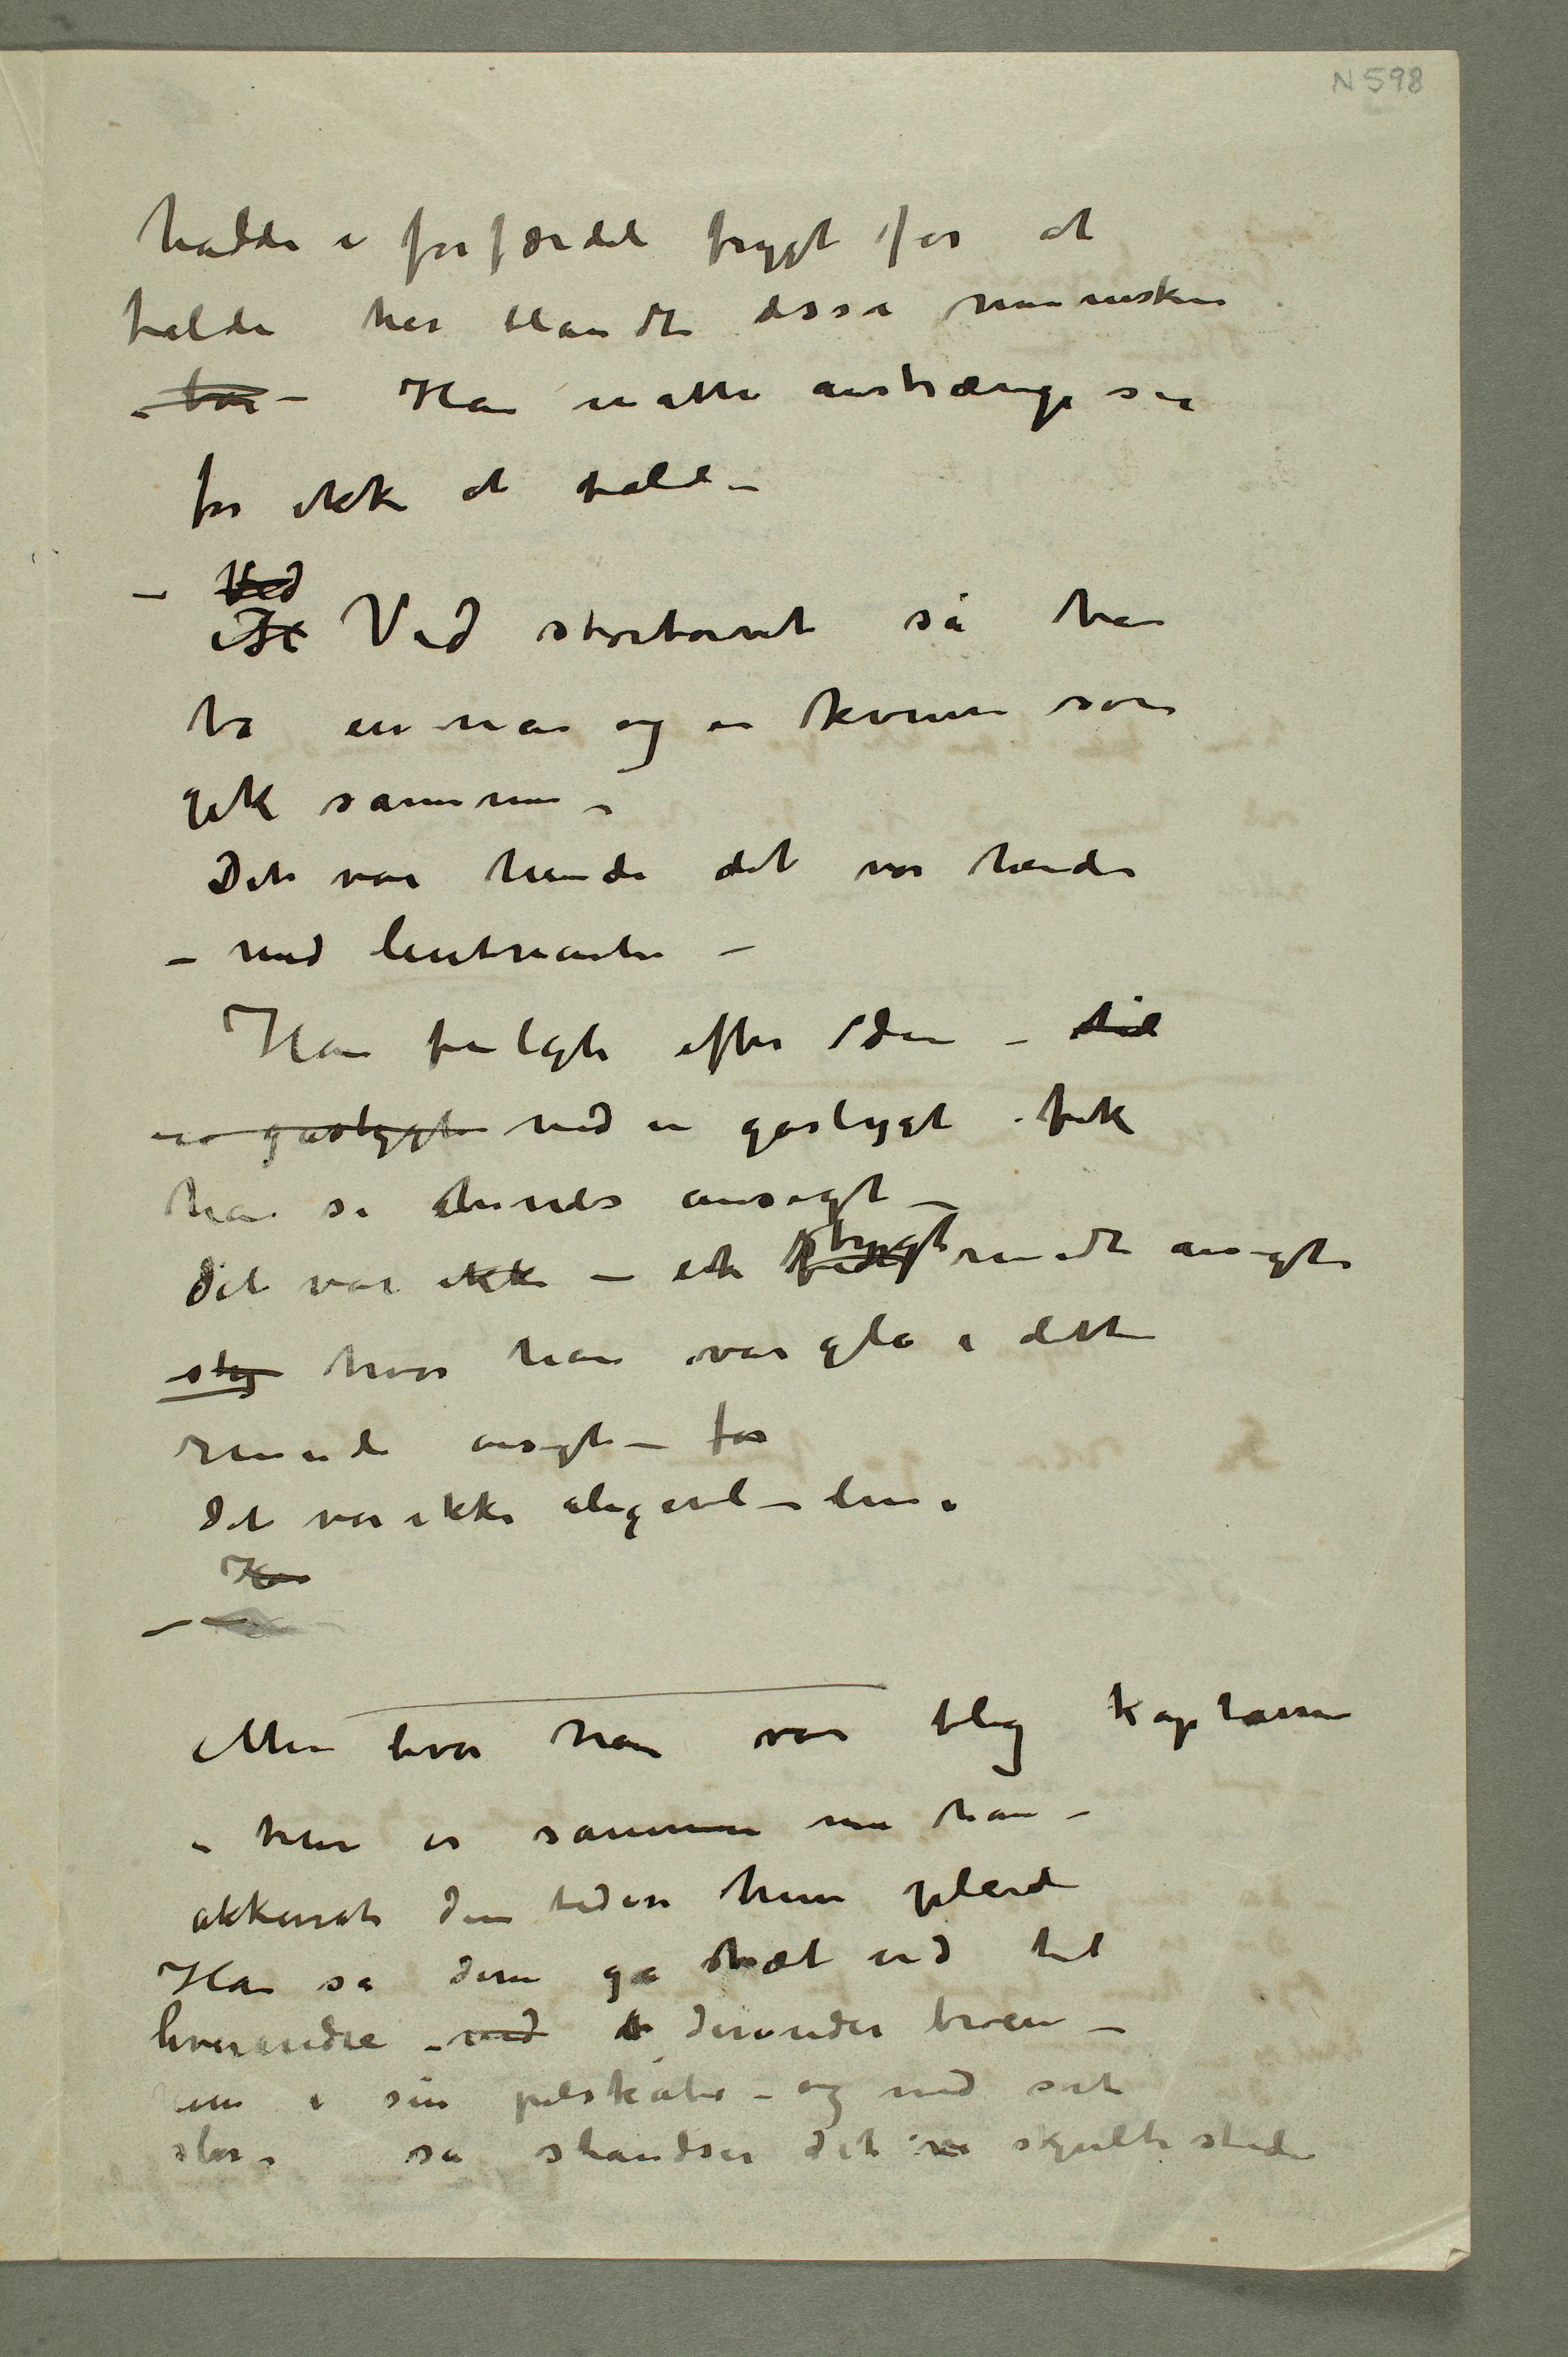 N 598
hadde i forfærdeli frygt for at
falde her blandt disse mennesken
– bar – Han måtte anstrænge sig
for ikke at falde –
– Ved
H Ved stortorvet så han
to en man og en kvinne som
gik sammen –
Det var hende det var hende
– med leutnanten –
Han fulgte efter dem – til
en gaslygte ved en gaslygt fik
han se hendes ansigt –
det var ikke – et stygt rundt ansigt
styg hvor han var gla i dette
runde ansigt – for
Det var ikke aligevel – hun
Han
Men hvor han var bleg kaptainen
– hun er sammen med han –
akkurat den tiden hun pleide
Han så dem gå tæt ind til
hverandre – ved derunder broen –
hun i sin pelskåbe – og med sit
slør – så standser det skjulte stede